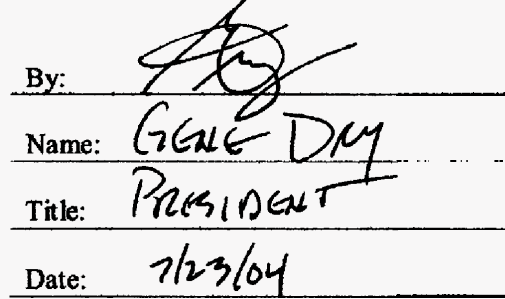 By:
Name: GENE DRY
Title: PRESIDENT
Date: 7/23/04